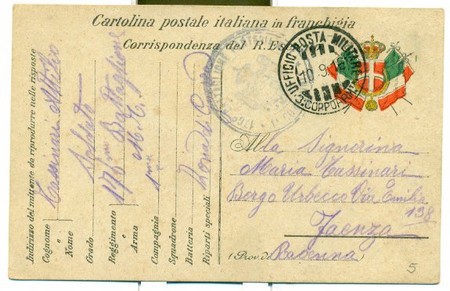 Cartolina postale italiana in franchigia
Corrispondenza del R. Es
UFFICIO POSTA MILITARE
10.9.1
3. CORPO
Indirizzo del mittente da riprodurre nelle risposte
Cognome Tassinari
e
Nome Attilio
Grado Soldato
Reggimento 176mo Battaglione
e
Arma M. T.
Compagnia 1ma
Squadrone
Batteria
Riparti speciali
Alla Signorina
Maria Tassinari
Borgo Urbecco Via Emilia
198
Faenza
(Prov. di Ravenna)
5